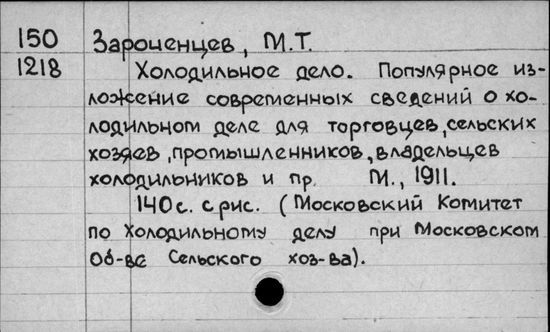 150 Зароченцев, М.Т.
1218 Холодильное дело. Популярное из-
ложение современных сведений о хо-
лодильном деле для торговцев, сельских
хозяев, промышленников, владельцев
холодильников и пр. М., 1911.
140 с. с рис. (Московский Комитет
по Холодильному делу при Московском
Об-ве Сельского хоз-ва).